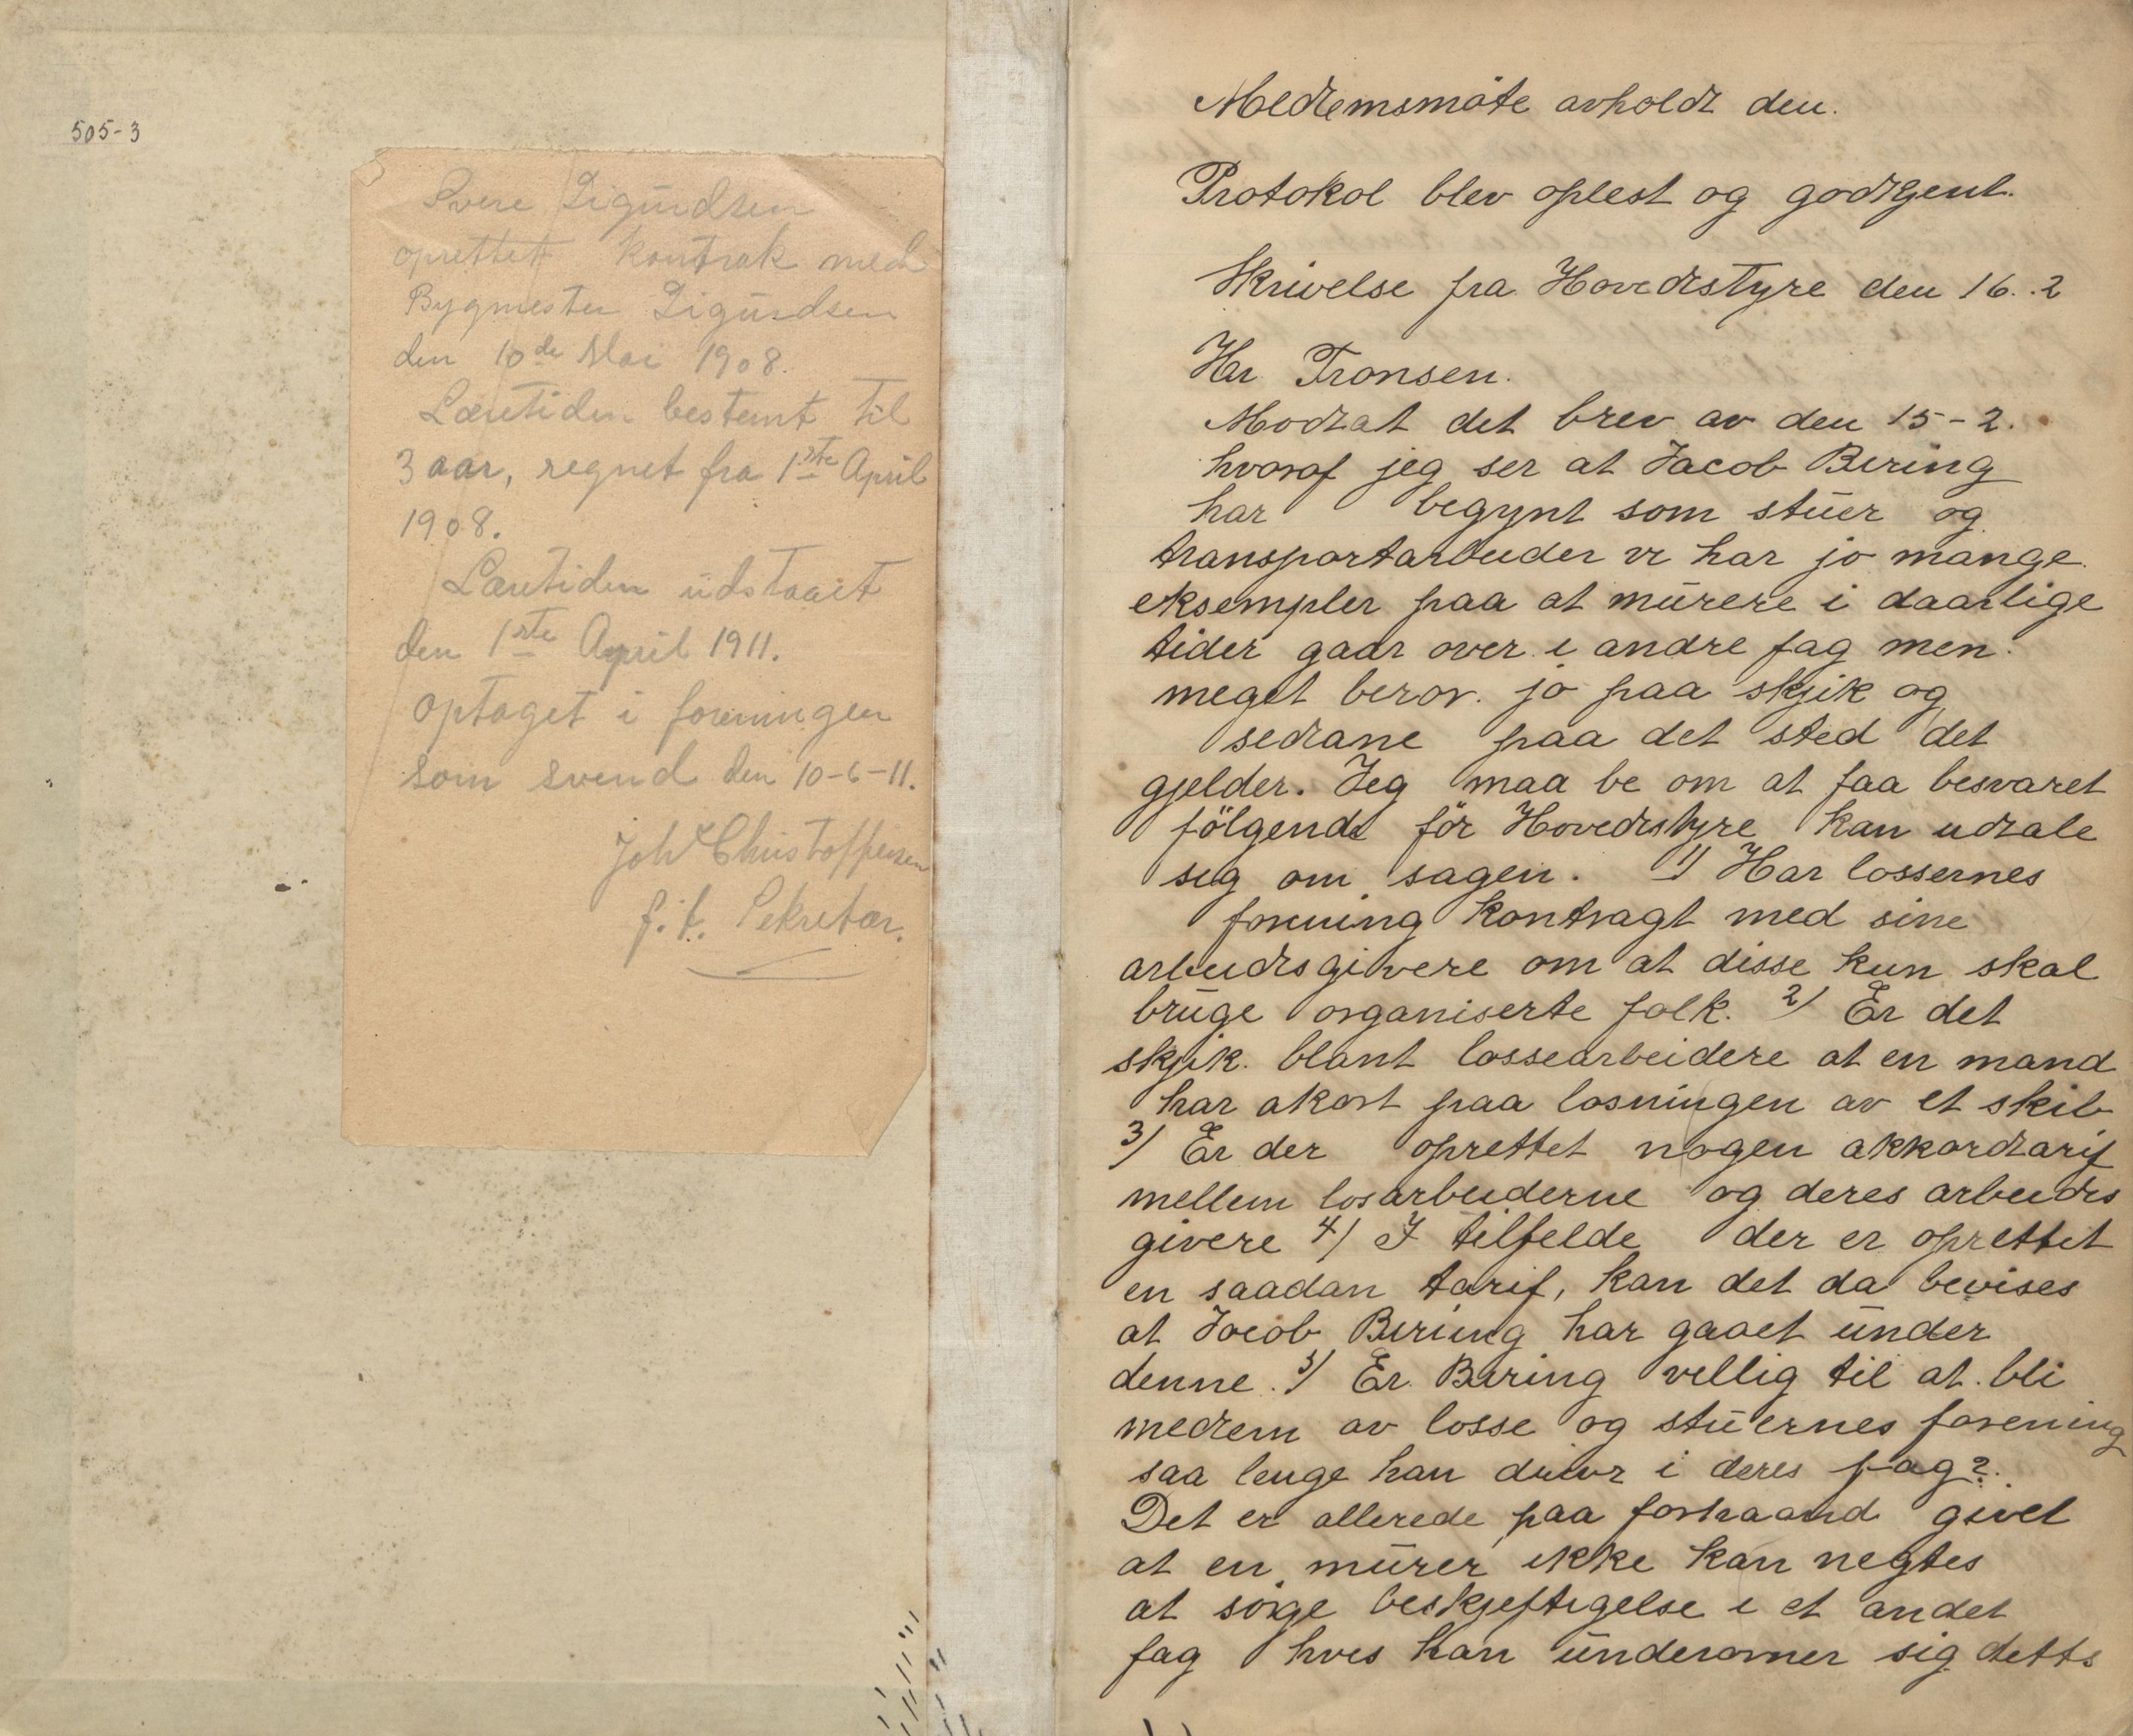 505-3
Svere Sigurdsen
oprettet kontrak med
Bygmester Sigurdsen
den 10de Mai 1908.
Læretiden bestemt til
3 aar, regnet fra 1ste April
1908.
Læretiden udstaaet
den 1ste April 1911.
optaget i foreningen
som svend den 10-6-11.
Joh Christoffersen
f.t. Sekretær.
Medlemsmöte avholdt den.
Protokol blev oplest og godkjent.
Skrivelse fra Hovedstyre den 16..2
Hr Tronsen.
Modtat det brev av den 15-2.
hvoraf jeg ser at Jacob Bering
har begynt som stuer og
transportarbeider vi har jo mange
eksempler paa at murere i daarlige
tider gaar over i andre fag men
meget beror. jo paa skjik og
sedrane paa det sted det
gjelder. Jeg maa be om at faa besvaret
fölgende för Hovedstyre kan udtale
sig om sagen. 1) Har lossernes
forening kontragt med sine
arbeidsgivere om at disse kun skal
bruge organiserte folk. 2) Er det
skjik. blant lossearbeidere at en mand
har akort paa losningen av et skib
3) Er der oprettet nogen akkordtarif
mellem losarbeiderne og deres arbeids
givere 4) I tilfelde der er oprettet
en saadan tarif, kan det da bevises
at Jacob Bering har gaaet under
denne. 5) Er Bering villig til at bli
medlem av losse og stuernes forening
saa lenge han driver i deres fag?
Det er allerede paa forhaand givet
at en murer ikke kan negtes
at söge beskjeftigelse i et andet
fag hvis han underorner sig detts